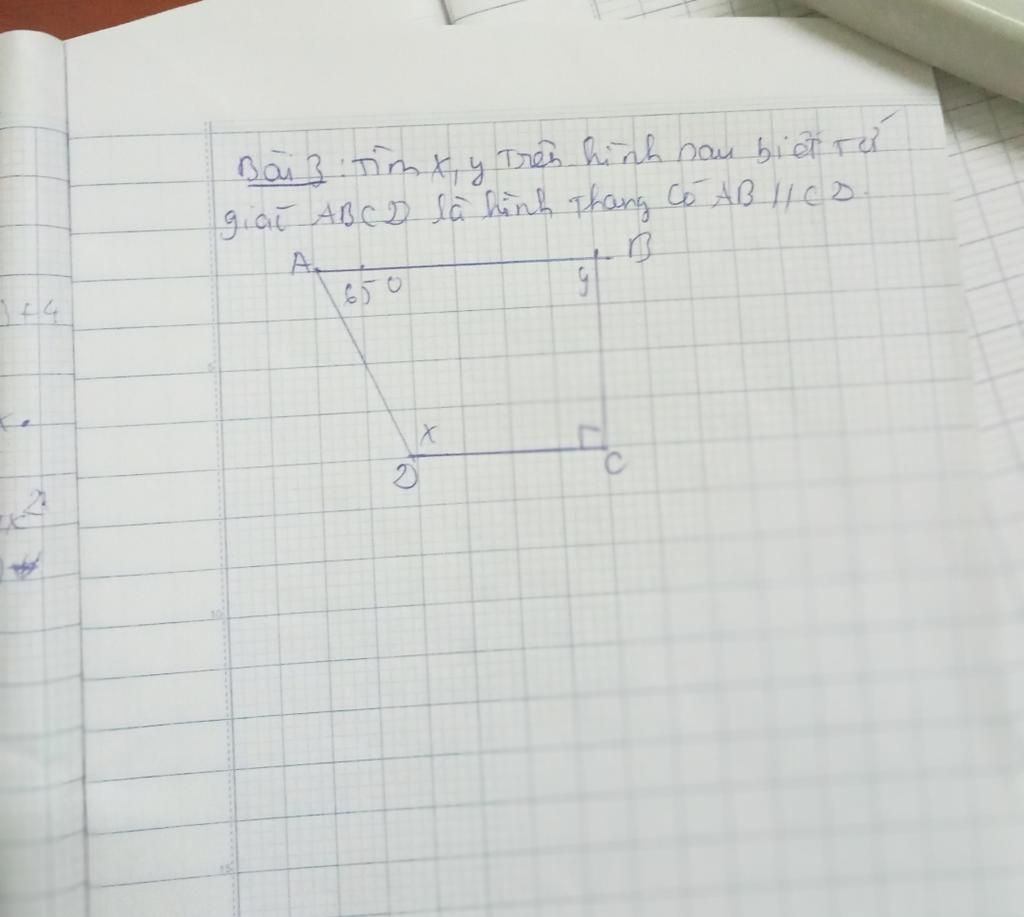 Bài 3: Tìm x, y Trên hình sau biết Tứ
giác ABCD là hình Thang Có AB // CD.
A B
65 0 y
x
D C
3 + 4
x.
x2